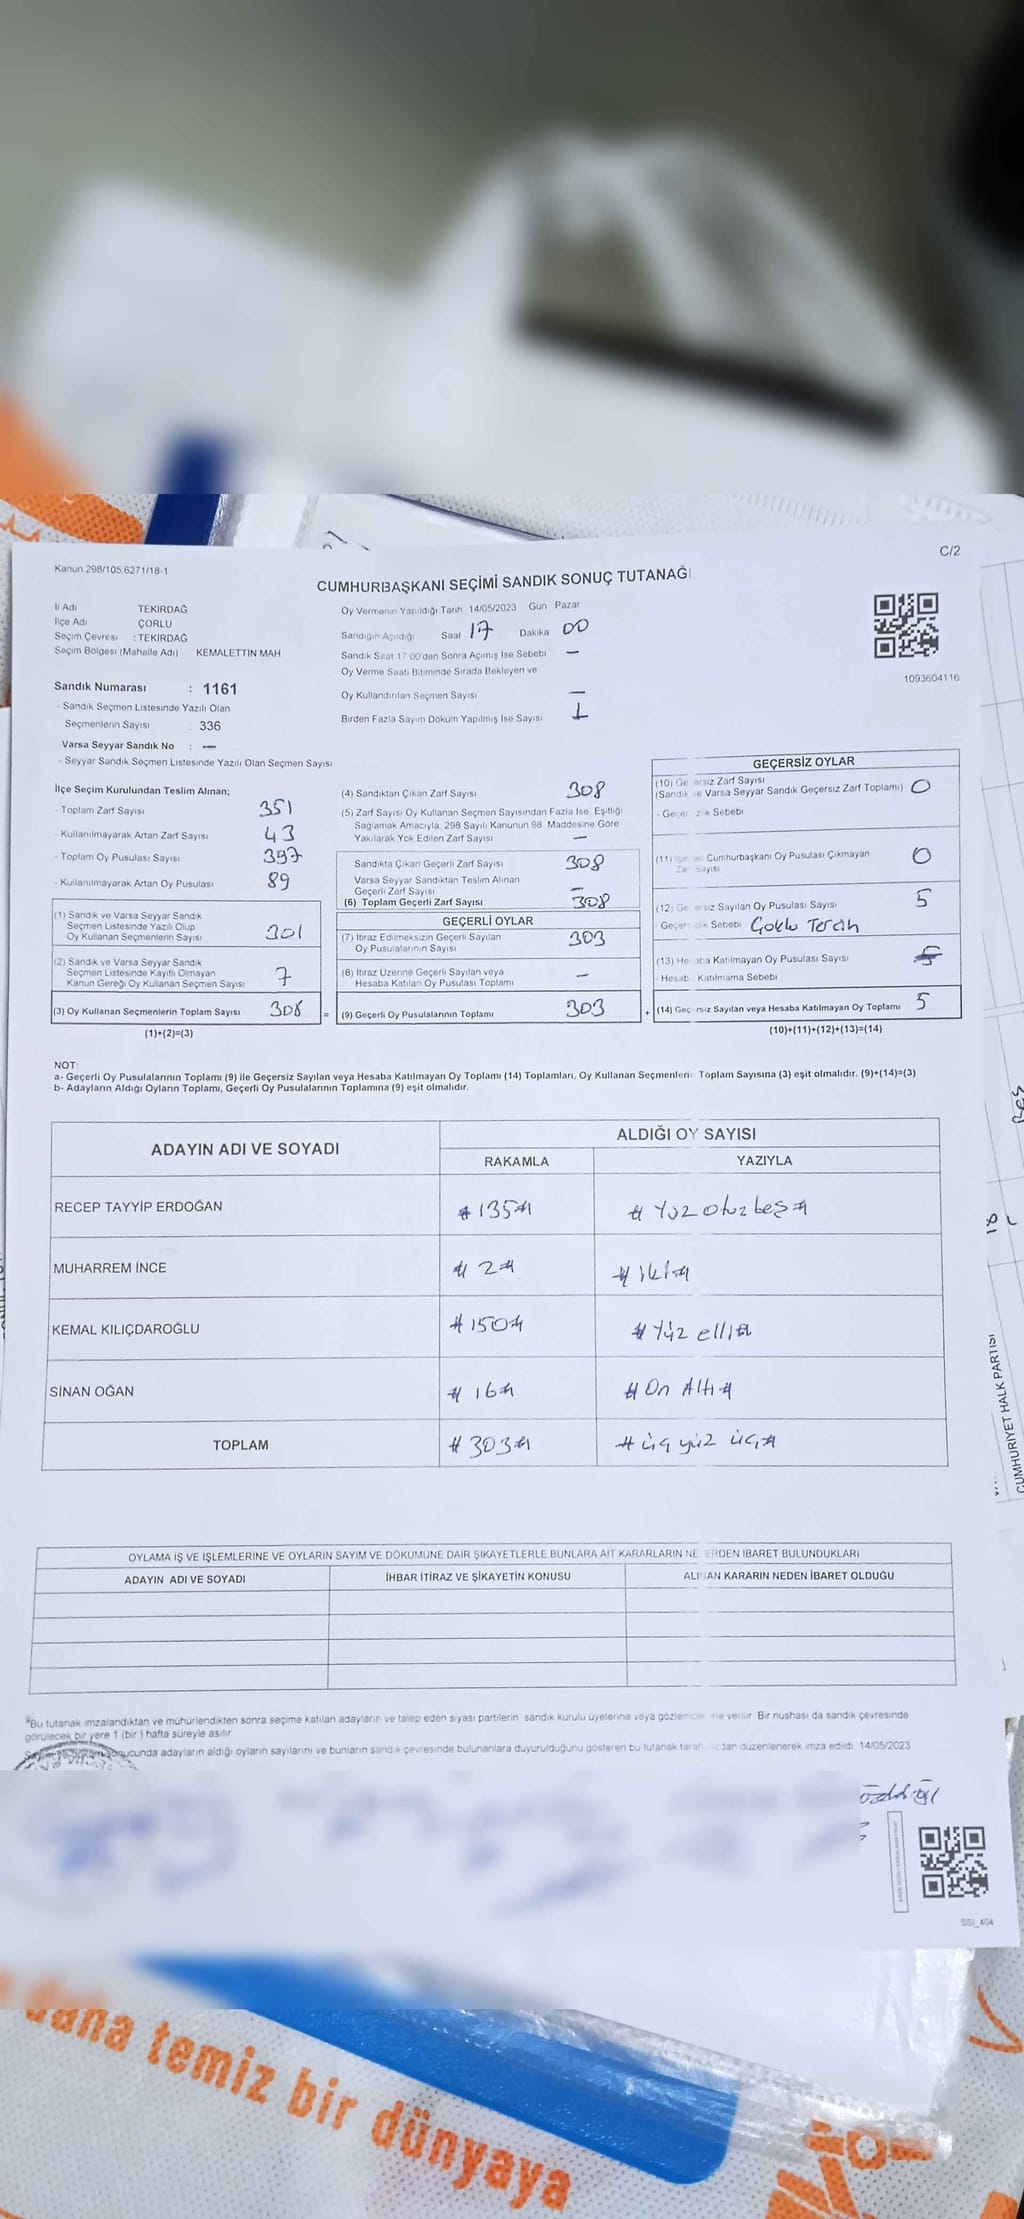 C/2
Kanun 298/105,6271/18-1
CUMHURBAŞKANI SEÇİMİ SANDIK SONUÇ TUTANAĞI
İl Adı TEKİRDAĞ
İlçe Adı ÇORLU
Seçim Çevresi : TEKİRDAĞ
Seçim Bölgesi (Mahalle Adı) KEMALETTİN MAH
Sandık Numarası : 1161
- Sandık Seçmen Listesinde Yazılı Olan
Seçmenlerin Sayısı 336
Varsa Seyyar Sandık No : —
- Seyyar Sandık Seçmen Listesinde Yazılı Olan Seçmen Sayısı
Oy Vermenin Yapıldığı Tarih 14/05/2023 Gün Pazar
Sandığın Açıldığı Saat 17 Dakika 00
Sandık Saat 17 00'den Sonra Açımış İse Sebebi —
Oy Verme Saati Bitiminde Sırada Bekleyen ve
Oy Kullandırılan Seçmen Sayısı —
Birden Fazla Sayım Döküm Yapılmış İse Sayısı 1
1093604116
İlçe Seçim Kurulundan Teslim Alınan;
- Toplam Zarf Sayısı 351
- Kullanılmayarak Artan Zarf Sayısı 43
- Toplam Oy Pusulası Sayısı 397
- Kullanılmayarak Artan Oy Pusulası 89
(1) Sandık ve Varsa Seyyar Sandık
Seçmen Listesinde Yazılı Olup
Oy Kullanan Seçmenlerin Sayısı 301
(2) Sandık ve Varsa Seyyar Sandık
Seçmen Listesinde Kayıtlı Olmayan
Kanun Gereği Oy Kullanan Seçmen Sayısı 7
(3) Oy Kullanan Seçmenlerin Toplam Sayısı 308
(1)+(2)=(3)
(4) Sandıktan Çıkan Zarf Sayısı 308
(5) Zarf Sayısı Oy Kullanan Seçmen Sayısından Fazla İse, Eşitliği
Sağlamak Amacıyla, 298 Sayılı Kanunun 98 Maddesine Göre
Yakılarak Yok Edilen Zarf Sayısı —
Sandıkta Çıkan Geçerli Zarf Sayısı 308
Varsa Seyyar Sandıktan Teslim Alınan
Geçerli Zarf Sayısı —
(6) Toplam Geçerli Zarf Sayısı 308
GEÇERLİ OYLAR
(7) İtiraz Edilmeksizin Geçerli Sayılan
Oy Pusulalarının Sayısı 303
(8) İtiraz Üzerine Geçerli Sayılan veya
Hesaba Katılan Oy Pusulası Toplamı —
= (9) Geçerli Oy Pusulalarının Toplamı 303
GEÇERSİZ OYLAR
(10) Zarf Sayısı
(Sandık ve Varsa Seyyar Sandık Geçersiz Zarf Toplamı) 0
Sebebi
(11) Cumhurbaşkanı Oy Pusulası Çıkmayan
Sayısı 0
(12) Sayılan Oy Pusulası Sayısı 5
Sebebi Çoklu Tercih
(13) Katılmayan Oy Pusulası Sayısı
Katılmama Sebebi
+ (14) Sayılan veya Hesaba Katılmayan Oy Toplamı 5
(10)+(11)+(12)+(13)=(14)
NOT:
a- Geçerli Oy Pusulalarının Toplamı (9) ile Geçersiz Sayılan veya Hesaba Katılmayan Oy Toplamı (14) Toplamları, Oy Kullanan Seçmenlerin Toplam Sayısına (3) eşit olmalıdır. (9)+(14)=(3)
b- Adayların Aldığı Oyların Toplamı, Geçerli Oy Pusulalarının Toplamına (9) eşit olmalıdır.
ADAYIN ADI VE SOYADI ALDIĞI OY SAYISI
RAKAMLA YAZIYLA
RECEP TAYYİP ERDOĞAN #135# #Yüz otuz beş#
MUHARREM İNCE #2# #iki#
KEMAL KILIÇDAROĞLU #150# #Yüz elli#
SİNAN OĞAN #16# #On Altı#
TOPLAM #303# #üç yüz üç#
OYLAMA İŞ VE İŞLEMLERİNE VE OYLARIN SAYIM VE DÖKÜMÜNE DAİR ŞİKAYETLERLE BUNLARA AİT KARARLARIN NEDEN İBARET BULUNDUKLARI
ADAYIN ADI VE SOYADI İHBAR İTİRAZ VE ŞİKAYETİN KONUSU ALINAN KARARIN NEDEN İBARET OLDUĞU
*Bu tutanak imzalandıktan ve mühürlendikten sonra seçime katılan adayların ve talep eden siyasi partilerin sandık kurulu üyelerine veya verilir Bir nüshası da sandık çevresinde
görülecek bir yere 1 (bir ) hafta süreyle asılır
adayların aldığı oyların sayılarını ve bunların sandık çevresinde bulunanlara duyurulduğunu gösteren bu tutanak düzenlenerek imza edildi. 14/05/2023
SSI_404
CUMHURİYET HALK PARTİSİ
18
daha temiz bir dünyaya